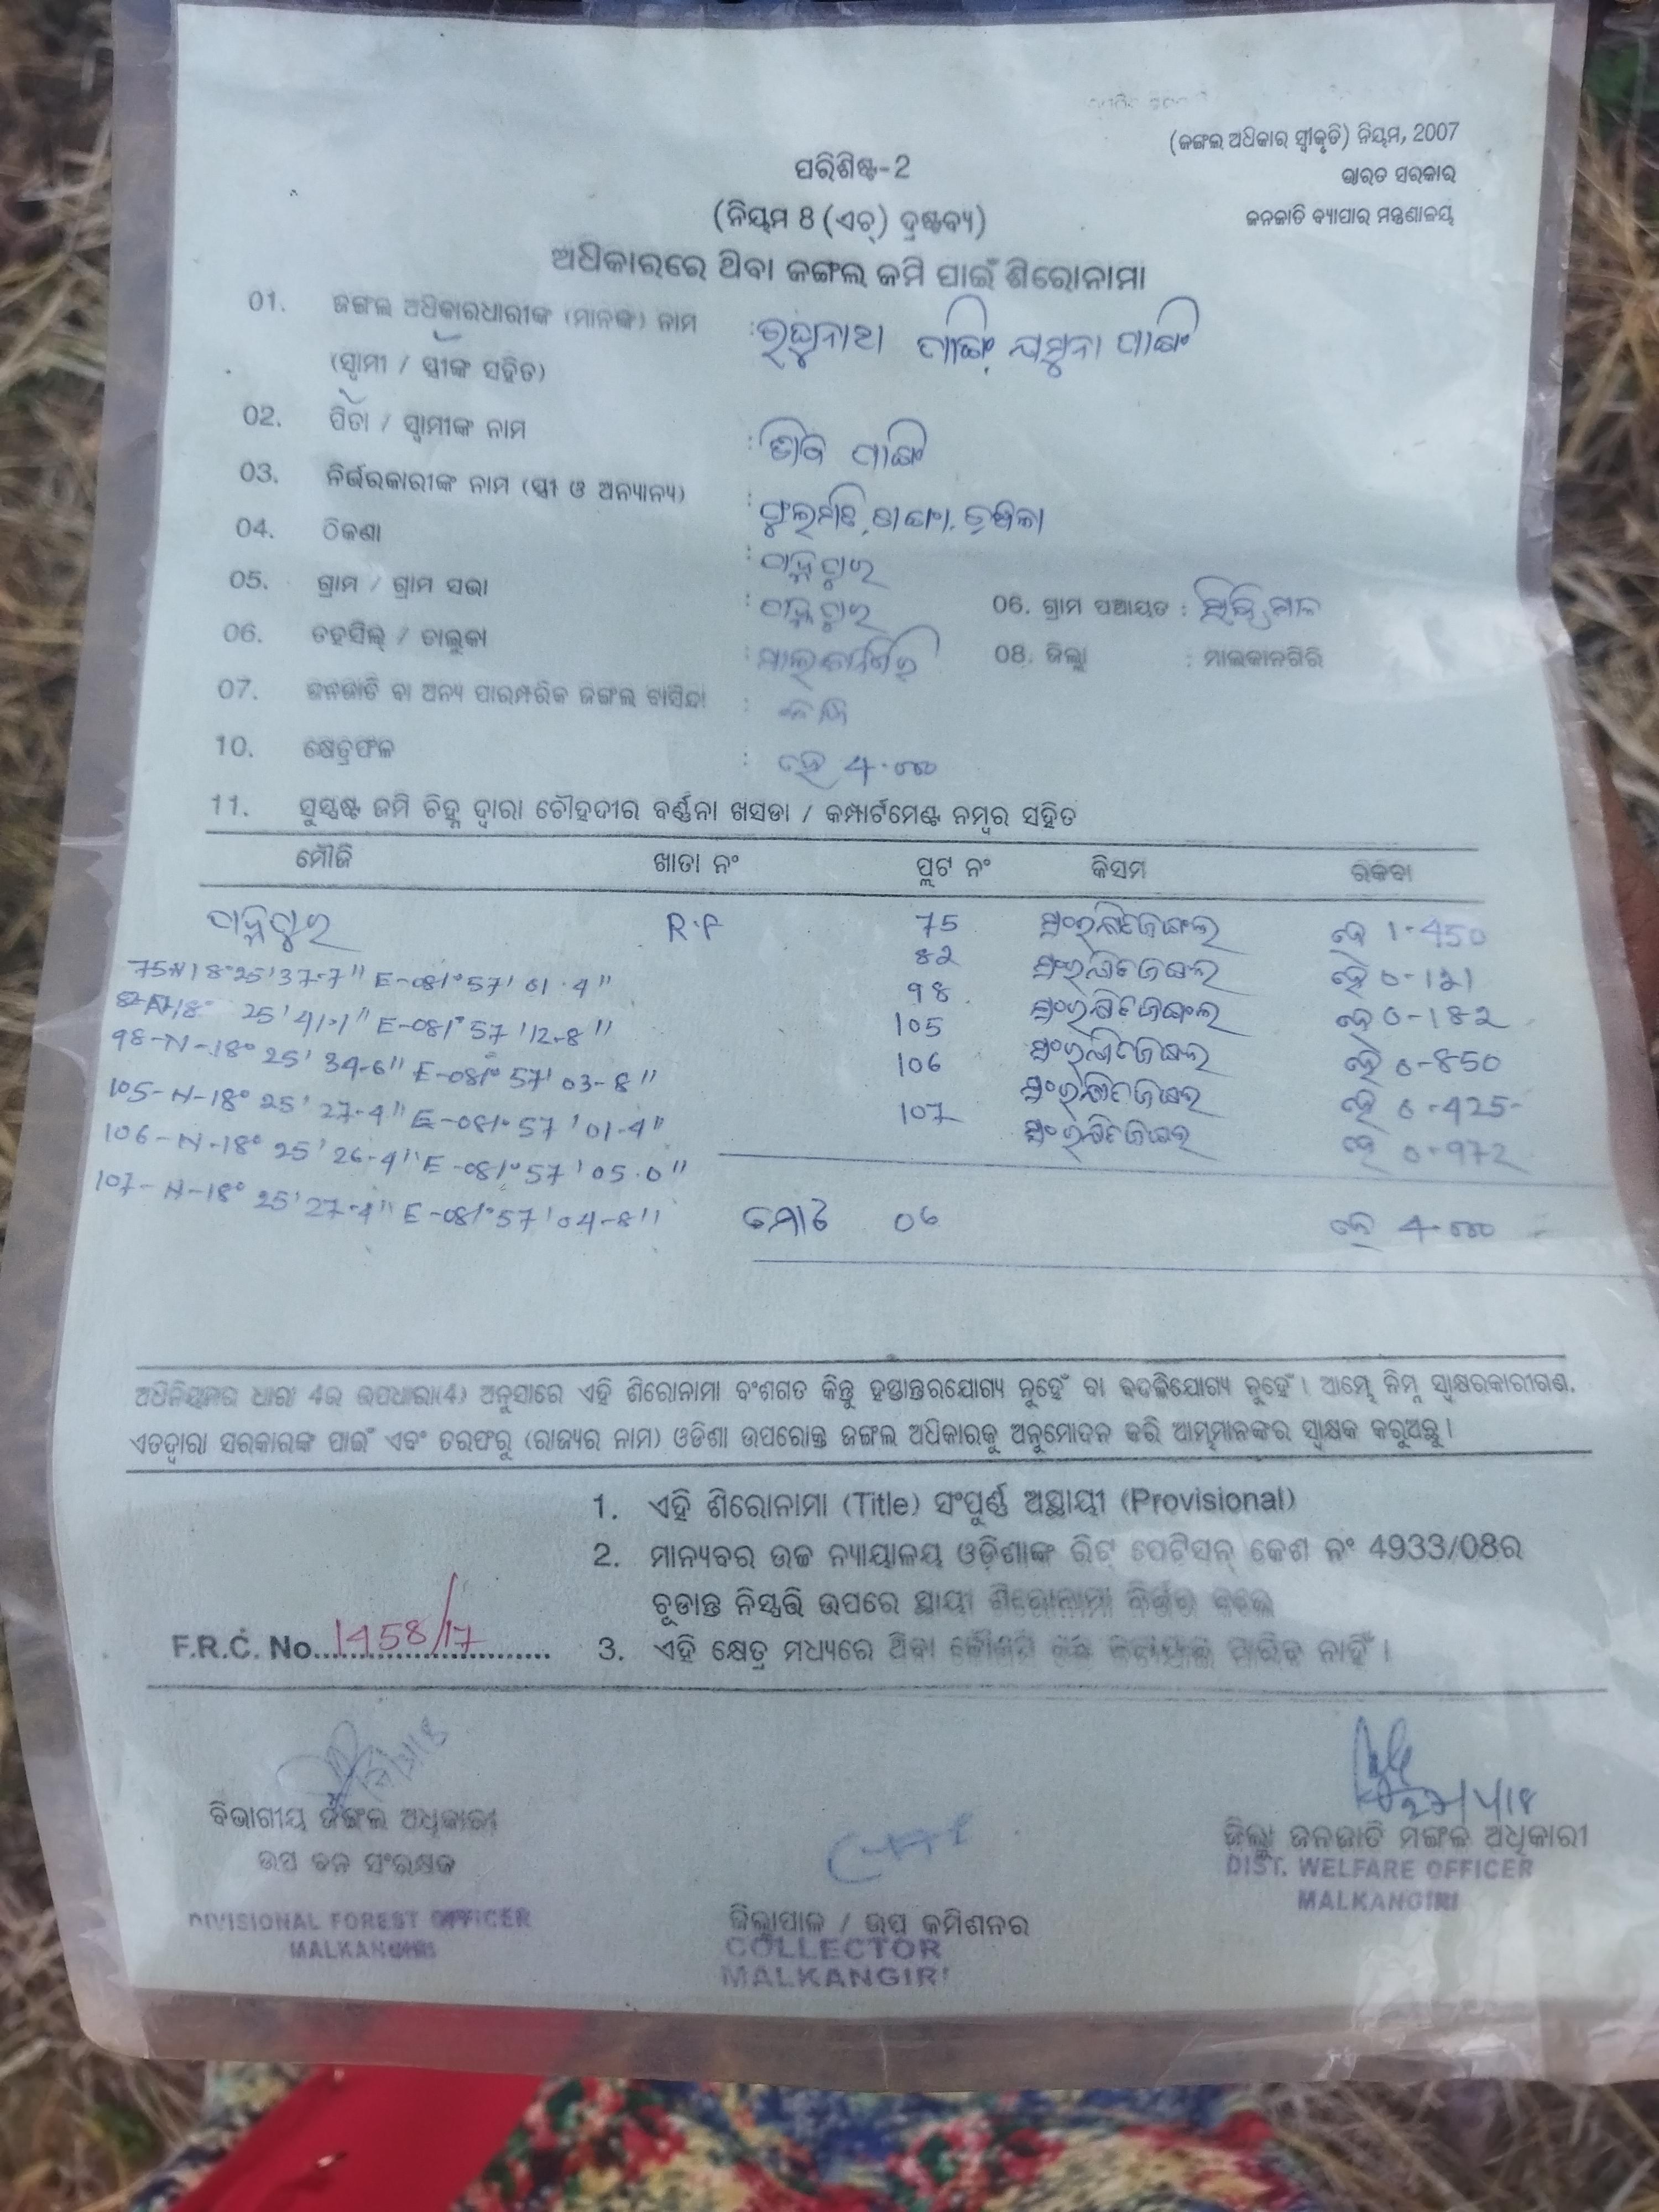 (ଜଙ୍ଗଲ ଅଧିକାର ସ୍ୱୀକୃତି) ନିୟମ, 2007
ପରିଶିଷ୍ଟ-2
ଭାରତ ସରକାର
(ନିୟମ 8 (ଏଚ୍) ଦ୍ରଷ୍ଟବ୍ୟ)
ଜନଜାତି ବ୍ୟାପାର ମନ୍ତ୍ରଣାଳୟ
ଅଧିକାରରେ ଥିବା ଜଙ୍ଗଲ ଜମି ପାଇଁ ଶିରୋନାମା
01. ଜଙ୍ଗଲ ଅଧିକାରଧାରୀଙ୍କ (ମାନଙ୍କ) ନାମ : ରଘୁନାଥ ପାଙ୍ଗି, ଯମୁନା ପାଙ୍ଗି
(ସ୍ୱାମୀ / ସ୍ତ୍ରୀଙ୍କ ସହିତ)
02. ପିତା / ସ୍ୱାମୀଙ୍କ ନାମ : ଶିବ ପାଙ୍ଗି
03. ନିର୍ଭରକାରୀଙ୍କ ନାମ (ସ୍ତ୍ରୀ ଓ ଅନ୍ୟାନ୍ୟ) :
04. ଠିକଣା :
05. ଗ୍ରାମ / ଗ୍ରାମ ସଭା : 06. ଗ୍ରାମ ପଞ୍ଚାୟତ :
06. ତହସିଲ୍ / ତାଲୁକା : ମାଲକାନଗିରି 08. ଜିଲ୍ଲା : ମାଲକାନଗିରି
07. ଜନଜାତି ବା ଅନ୍ୟ ପାରମ୍ପରିକ ଜଙ୍ଗଲ ବାସିନ୍ଦା :
10. କ୍ଷେତ୍ରଫଳ : ହେ 4.000
11. ସୁସ୍ପଷ୍ଟ ଜମି ଚିହ୍ନ ଦ୍ୱାରା ଚୌହଦୀର ବର୍ଣ୍ଣନା ଖସଡା / କମ୍ପାର୍ଟମେଣ୍ଟ ନମ୍ବର ସହିତ
ମୌଜି ଖାତା ନଂ ପ୍ଲଟ ନଂ କିସମ ରକବା
R.F 75 ସଂରକ୍ଷିତ ଜଙ୍ଗଲ ହେ 1-450
75-N18°25'37-7" E-081°57'01.4" 82 ସଂରକ୍ଷିତ ଜଙ୍ଗଲ ହେ 0-121
82-N-18° 25'41.1" E-081°57'12-8" 98 ସଂରକ୍ଷିତ ଜଙ୍ଗଲ ହେ 0-182
98-N-18° 25' 34-6" E-081° 57' 03-8" 105 ସଂରକ୍ଷିତ ଜଙ୍ଗଲ ହେ 0-850
105-N-18° 25' 27-4" E-081°57'01-4" 106 ସଂରକ୍ଷିତ ଜଙ୍ଗଲ ହେ 0-425
106-N-18° 25' 26-4" E-081°57'05.0" 107 ସଂରକ୍ଷିତ ଜଙ୍ଗଲ ହେ 0-972
107-N-18° 25'27-4" E-081°57'04-8" ମୋଟ 06 ହେ 4.000
ଅଧିନିୟମର ଧାରା 4ର ଉପଧାରା(4) ଅନୁସାରେ ଏହି ଶିରୋନାମା ବଂଶଗତ କିନ୍ତୁ ହସ୍ତାନ୍ତରଯୋଗ୍ୟ ନୁହେଁ ବା ବଦଳିଯୋଗ୍ୟ ନୁହେଁ । ଆମ୍ଭେ ନିମ୍ନ ସ୍ୱାକ୍ଷରକାରୀଗଣ,
ଏତଦ୍ଦ୍ୱାରା ସରକାରଙ୍କ ପାଇଁ ଏବଂ ତରଫରୁ (ରାଜ୍ୟର ନାମ) ଓଡିଶା ଉପରୋକ୍ତ ଜଙ୍ଗଲ ଅଧିକାରକୁ ଅନୁମୋଦନ କରି ଆମ୍ଭମାନଙ୍କର ସ୍ୱାକ୍ଷକ କରୁଅଛୁ ।
1. ଏହି ଶିରୋନାମା (Title) ସଂପୂର୍ଣ୍ଣ ଅସ୍ଥାୟୀ (Provisional)
2. ମାନ୍ୟବର ଉଚ୍ଚ ନ୍ୟାୟାଳୟ ଓଡ଼ିଶାଙ୍କ ରିଟ୍ ପେଟିସନ୍ କେଶ ନଂ 4933/08ର
ଚୂଡାନ୍ତ ନିସ୍ପତ୍ତି ଉପରେ ସ୍ଥାୟୀ ଶିରୋନାମା ନିର୍ଭର କରେ
F.R.C. No. 1458/17 3. ଏହି କ୍ଷେତ୍ର ମଧ୍ୟରେ ଥିବା କୌଣସି ନାହିଁ ।
23/1/18
ବିଭାଗୀୟ ଜଙ୍ଗଲ ଅଧିକାରୀ
ଉପ ବନ ସଂରକ୍ଷକ
DIVISIONAL FOREST OFFICER
MALKANGIRI
ଜିଲ୍ଲାପାଳ / ଉପ କମିଶନର
COLLECTOR
MALKANGIRI
ଜିଲ୍ଲା ଜନଜାତି ମଙ୍ଗଳ ଅଧିକାରୀ
DIST. WELFARE OFFICER
MALKANGIRI